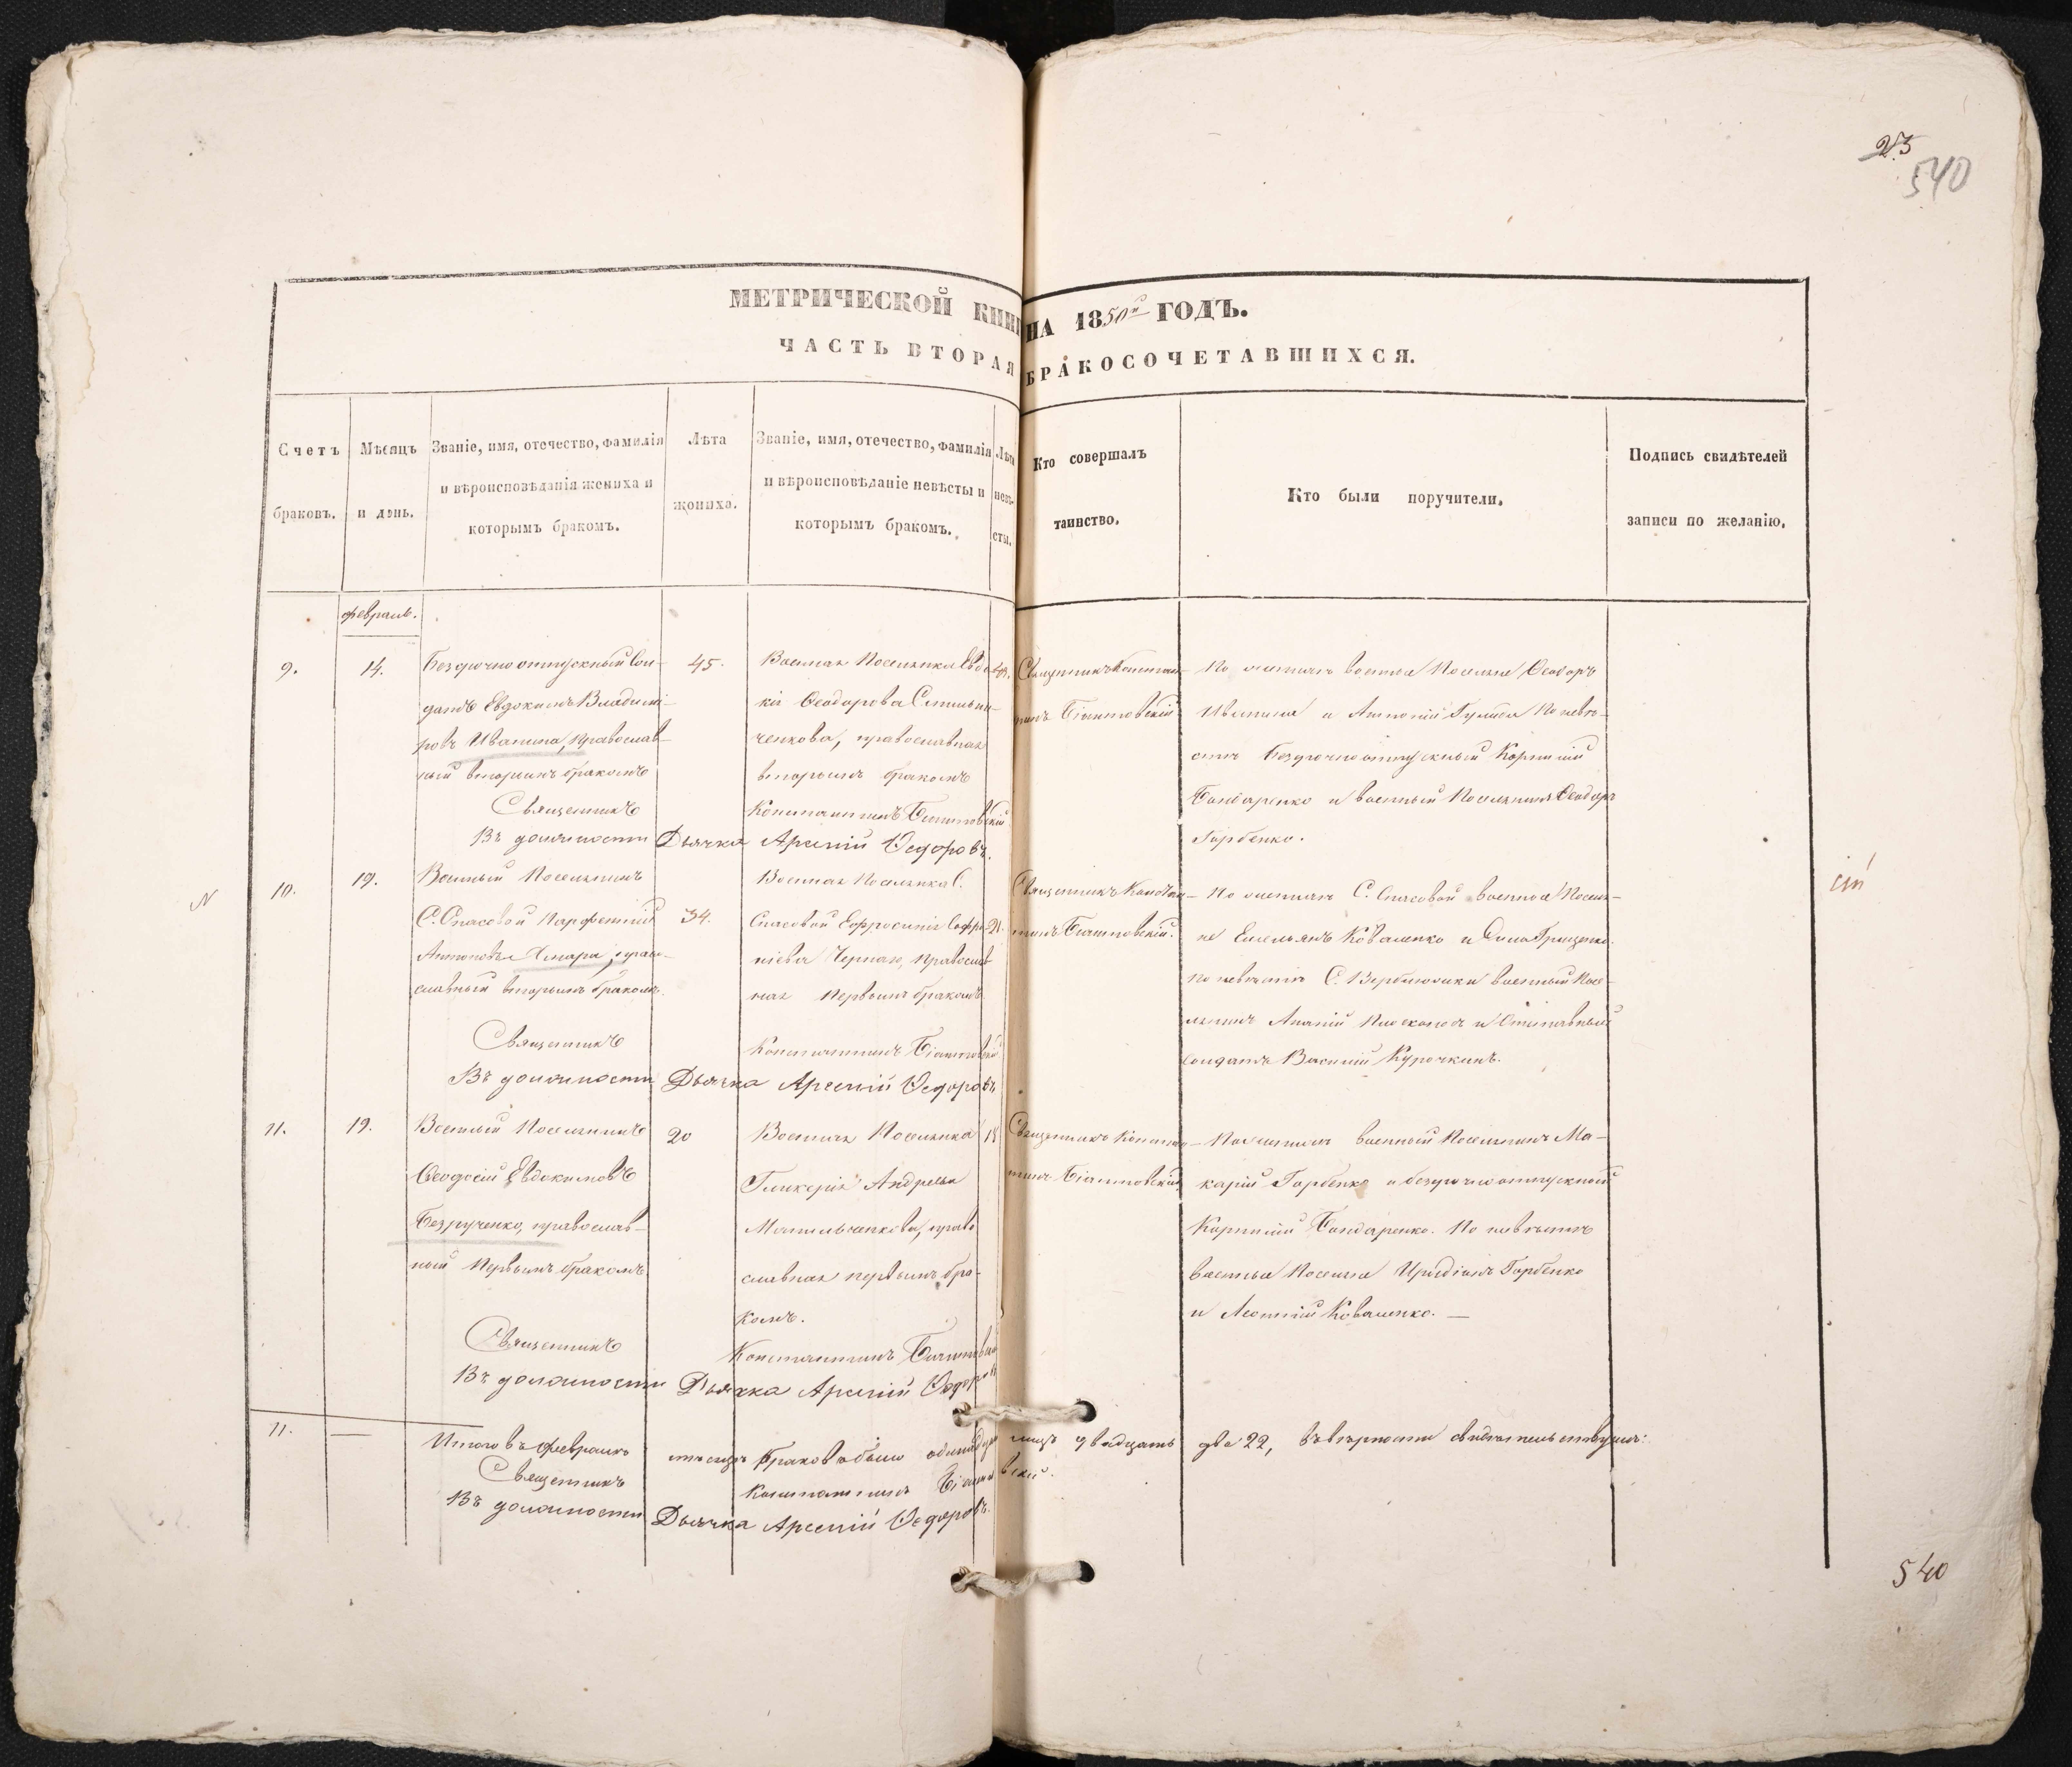 23
540
МЕТРИЧЕСКОЙ КНИГ НА 1850й ГОДЪ.
ЧАСТЬ ВТОРАЯ БРАКОСОЧЕТАВШИХСЯ.
Счетъ браковъ.
Мѣсяцъ и день.
Званіе, имя, отечество, фамилія
и вѣроисповѣданія жениха и
которымъ бракомъ.
Лѣта
жениха.
Званіе, имя, отечество, фамилія
и вѣроисповѣданіе невѣсты и
которымъ бракомъ.
Лѣта
невѣ-
сты.
Кто совершалъ
таинство.
Кто были поручители.
Подпись свидѣтелей
записи по желанію.
Февраль.
9.
14.
Безсрочноотпускный Сол-
датъ Евдокимъ Владимі-
ровъ Иванина, православ-
ный вторымъ бракомъ
45.
Военная Поселянка Евдо-
кія Феодорова
ченкова, православная
вторымъ бракомъ
Священникъ Констан-
тинъ Біантовскій
По женихѣ военные Поселяне Феодоръ
Иванина и Антоній По невѣ-
стѣ безсрочноотпускный Корнилій
Бондаренко и военный Поселянинъ Феодоръ
Горбенко.
Священникъ Константинъ Біантовскій
Въ должности Дьячка Арсеній Ѳедоровъ.
N
10.
19.
Военный Поселянинъ
С. Спасовой Парфентій
Антоновъ Хмара, право-
славный вторымъ бракомъ.
34.
Военная Поселянка С.
Спасовой Евфросинія Софро-
ніева Черная, православ-
ная первымъ бракомъ
21.
Священникъ Констан-
тинъ Біантовскій.
По женихѣ С. Спасовой военные Поселя-
не Емельянъ Коваленко и Грищенко.
по невѣстѣ С. Вербиновки военный Посе-
лянинъ Ананій и Отставный
солдатъ Василій Курочкинъ.
Священникъ Константинъ Біантовскій
Въ должности Дьячка Арсеній Ѳедоровъ
11.
19.
Военный Поселянинъ
Феодосій Евдокимовъ
Безрученко, православ-
ный Первымъ бракомъ
20
Военная Поселянка
Гликерія Андреева
право
славная первымъ бра-
комъ.
18
Священникъ Констан-
тинъ Біантовскій
По женихѣ военный Поселянинъ Ма-
карій Горбенко и безсрочноотпускный
Корнилій Бондаренко. По невѣстѣ
военные Поселяне Горбенко
и Леонтій Коваленко.
Священникъ Константинъ Біантовскій
Въ должности Дьячка Арсеній Ѳедоровъ
11.
Итого въ Февралѣ мѣсяцѣ браковъ было одинадцать лицъ двадцать два 22, въ вѣрности свидѣтельствуемъ:
Священникъ Константинъ Біантовскій.
Въ должности Дьячка Арсеній Ѳедоровъ.
540